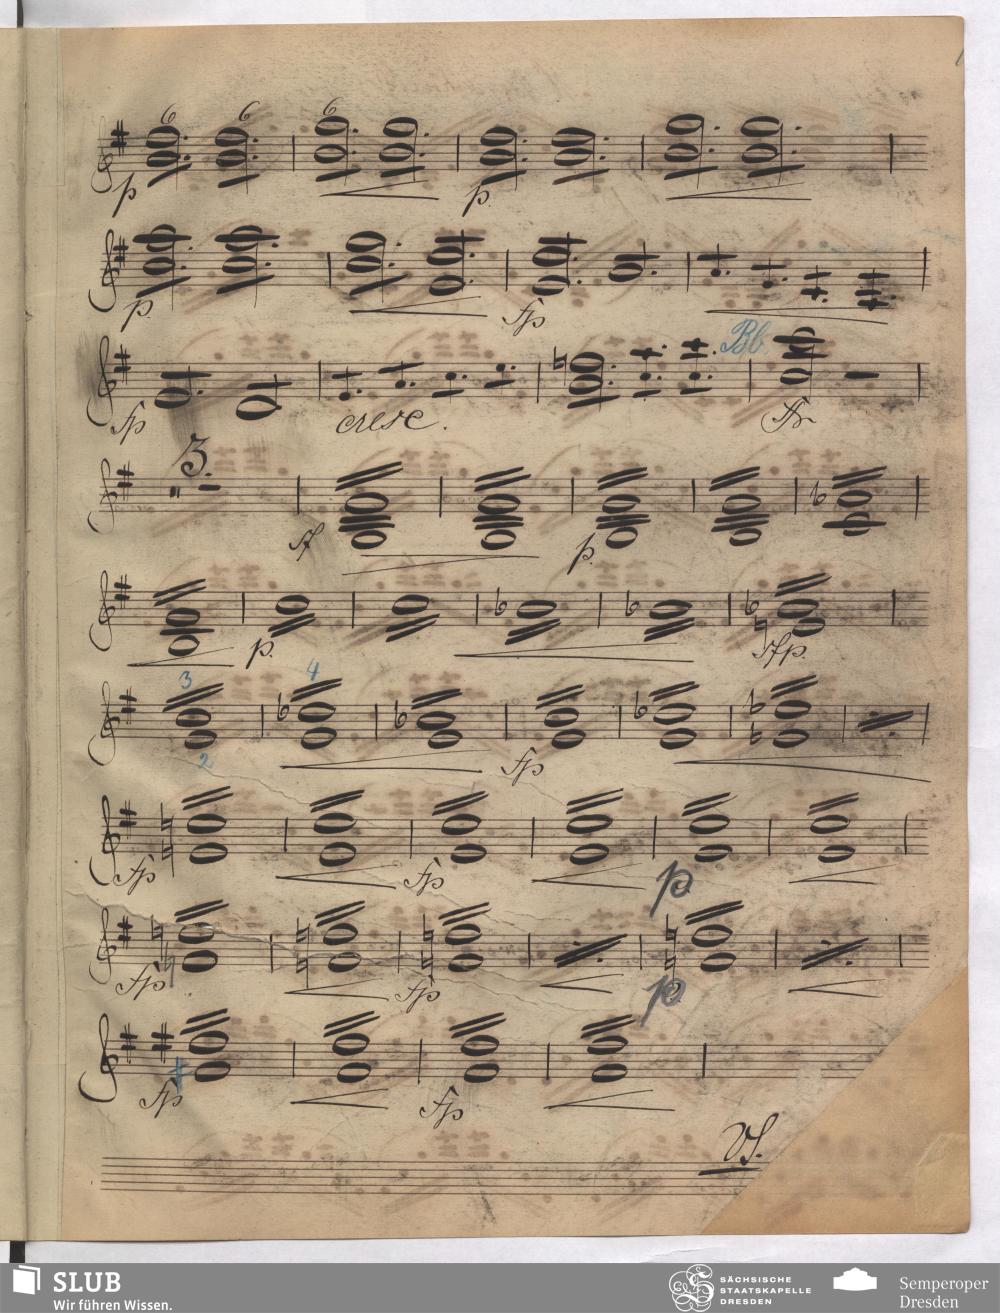 6 6 6
p p.
p. fp
Bb.
fp cresc.
3.
ff p.
p. sfp.
3 4
2
fp
fp fp p
fp fp p
fp fp
VS.
SLUB
Wir führen Wissen.
SÄCHSISCHE
STAATSKAPELLE
DRESDEN
Semperoper
Dresden